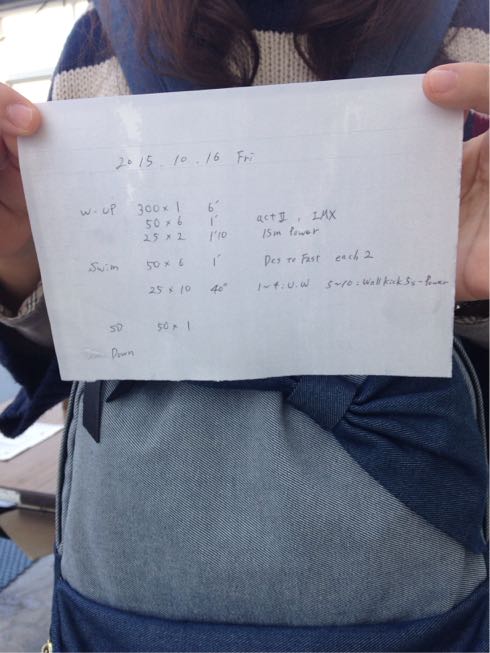 2015.10.16 Fri
W-UP 300×1 6'
50×6 1' act II, IMX
25×2 1'10 15m Power
Swim 50×6 1' Des to Fast each 2
25×10 40" 1~4:U.W 5~10:Wall kick 5s-Power
SD 50×1
Down